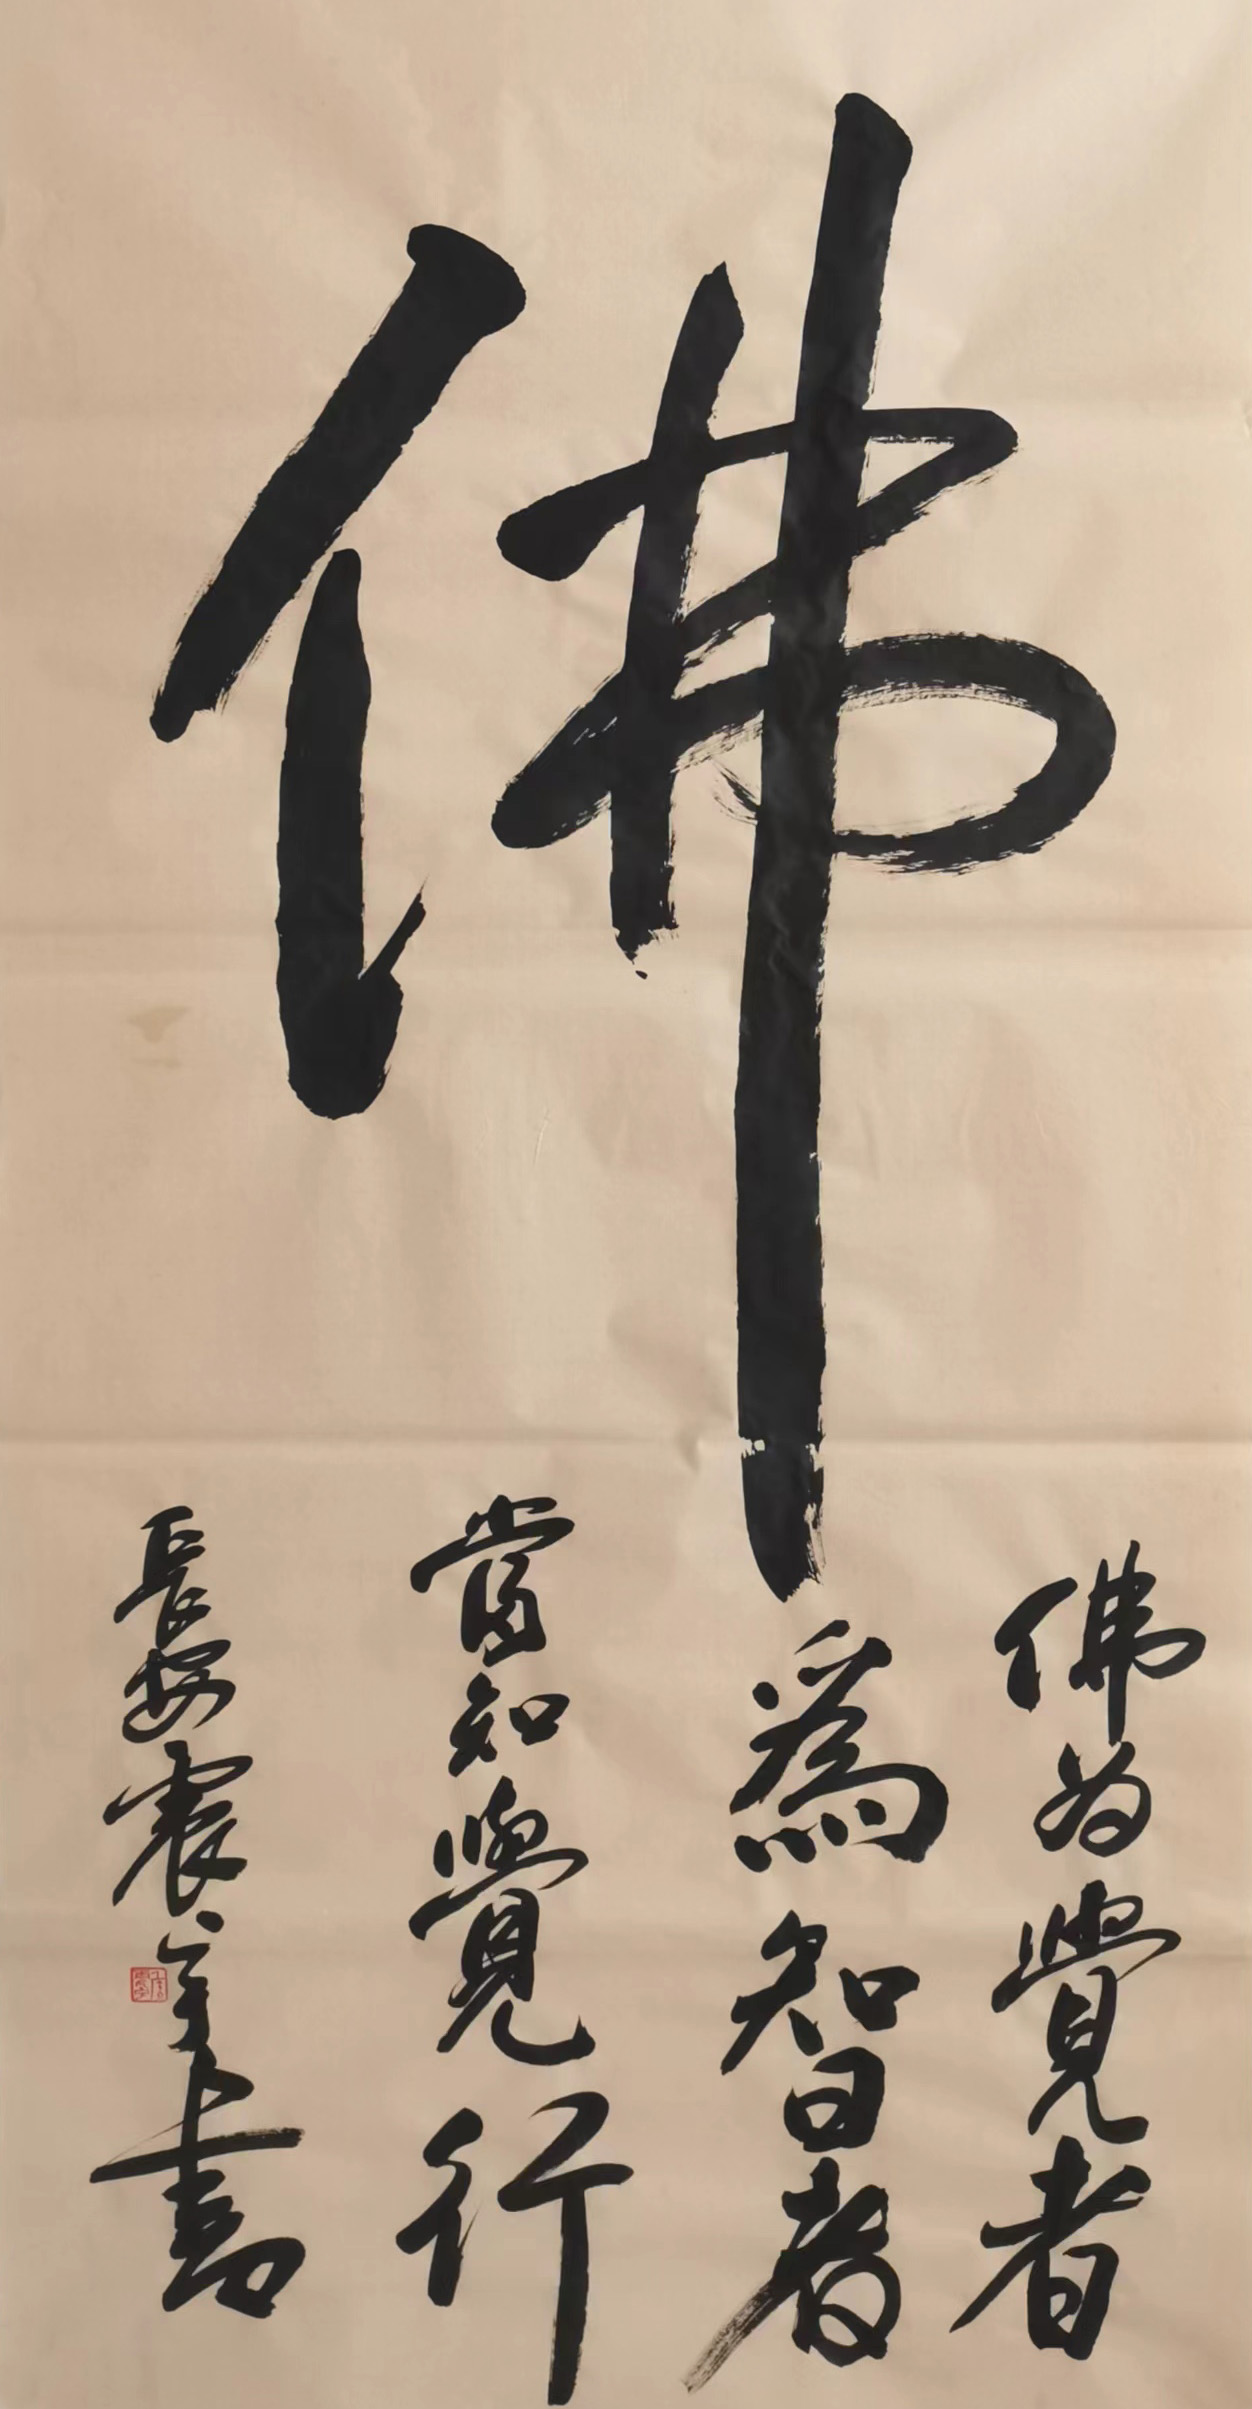 佛
佛为覺者
為智者
當知覺行
長安震宇書